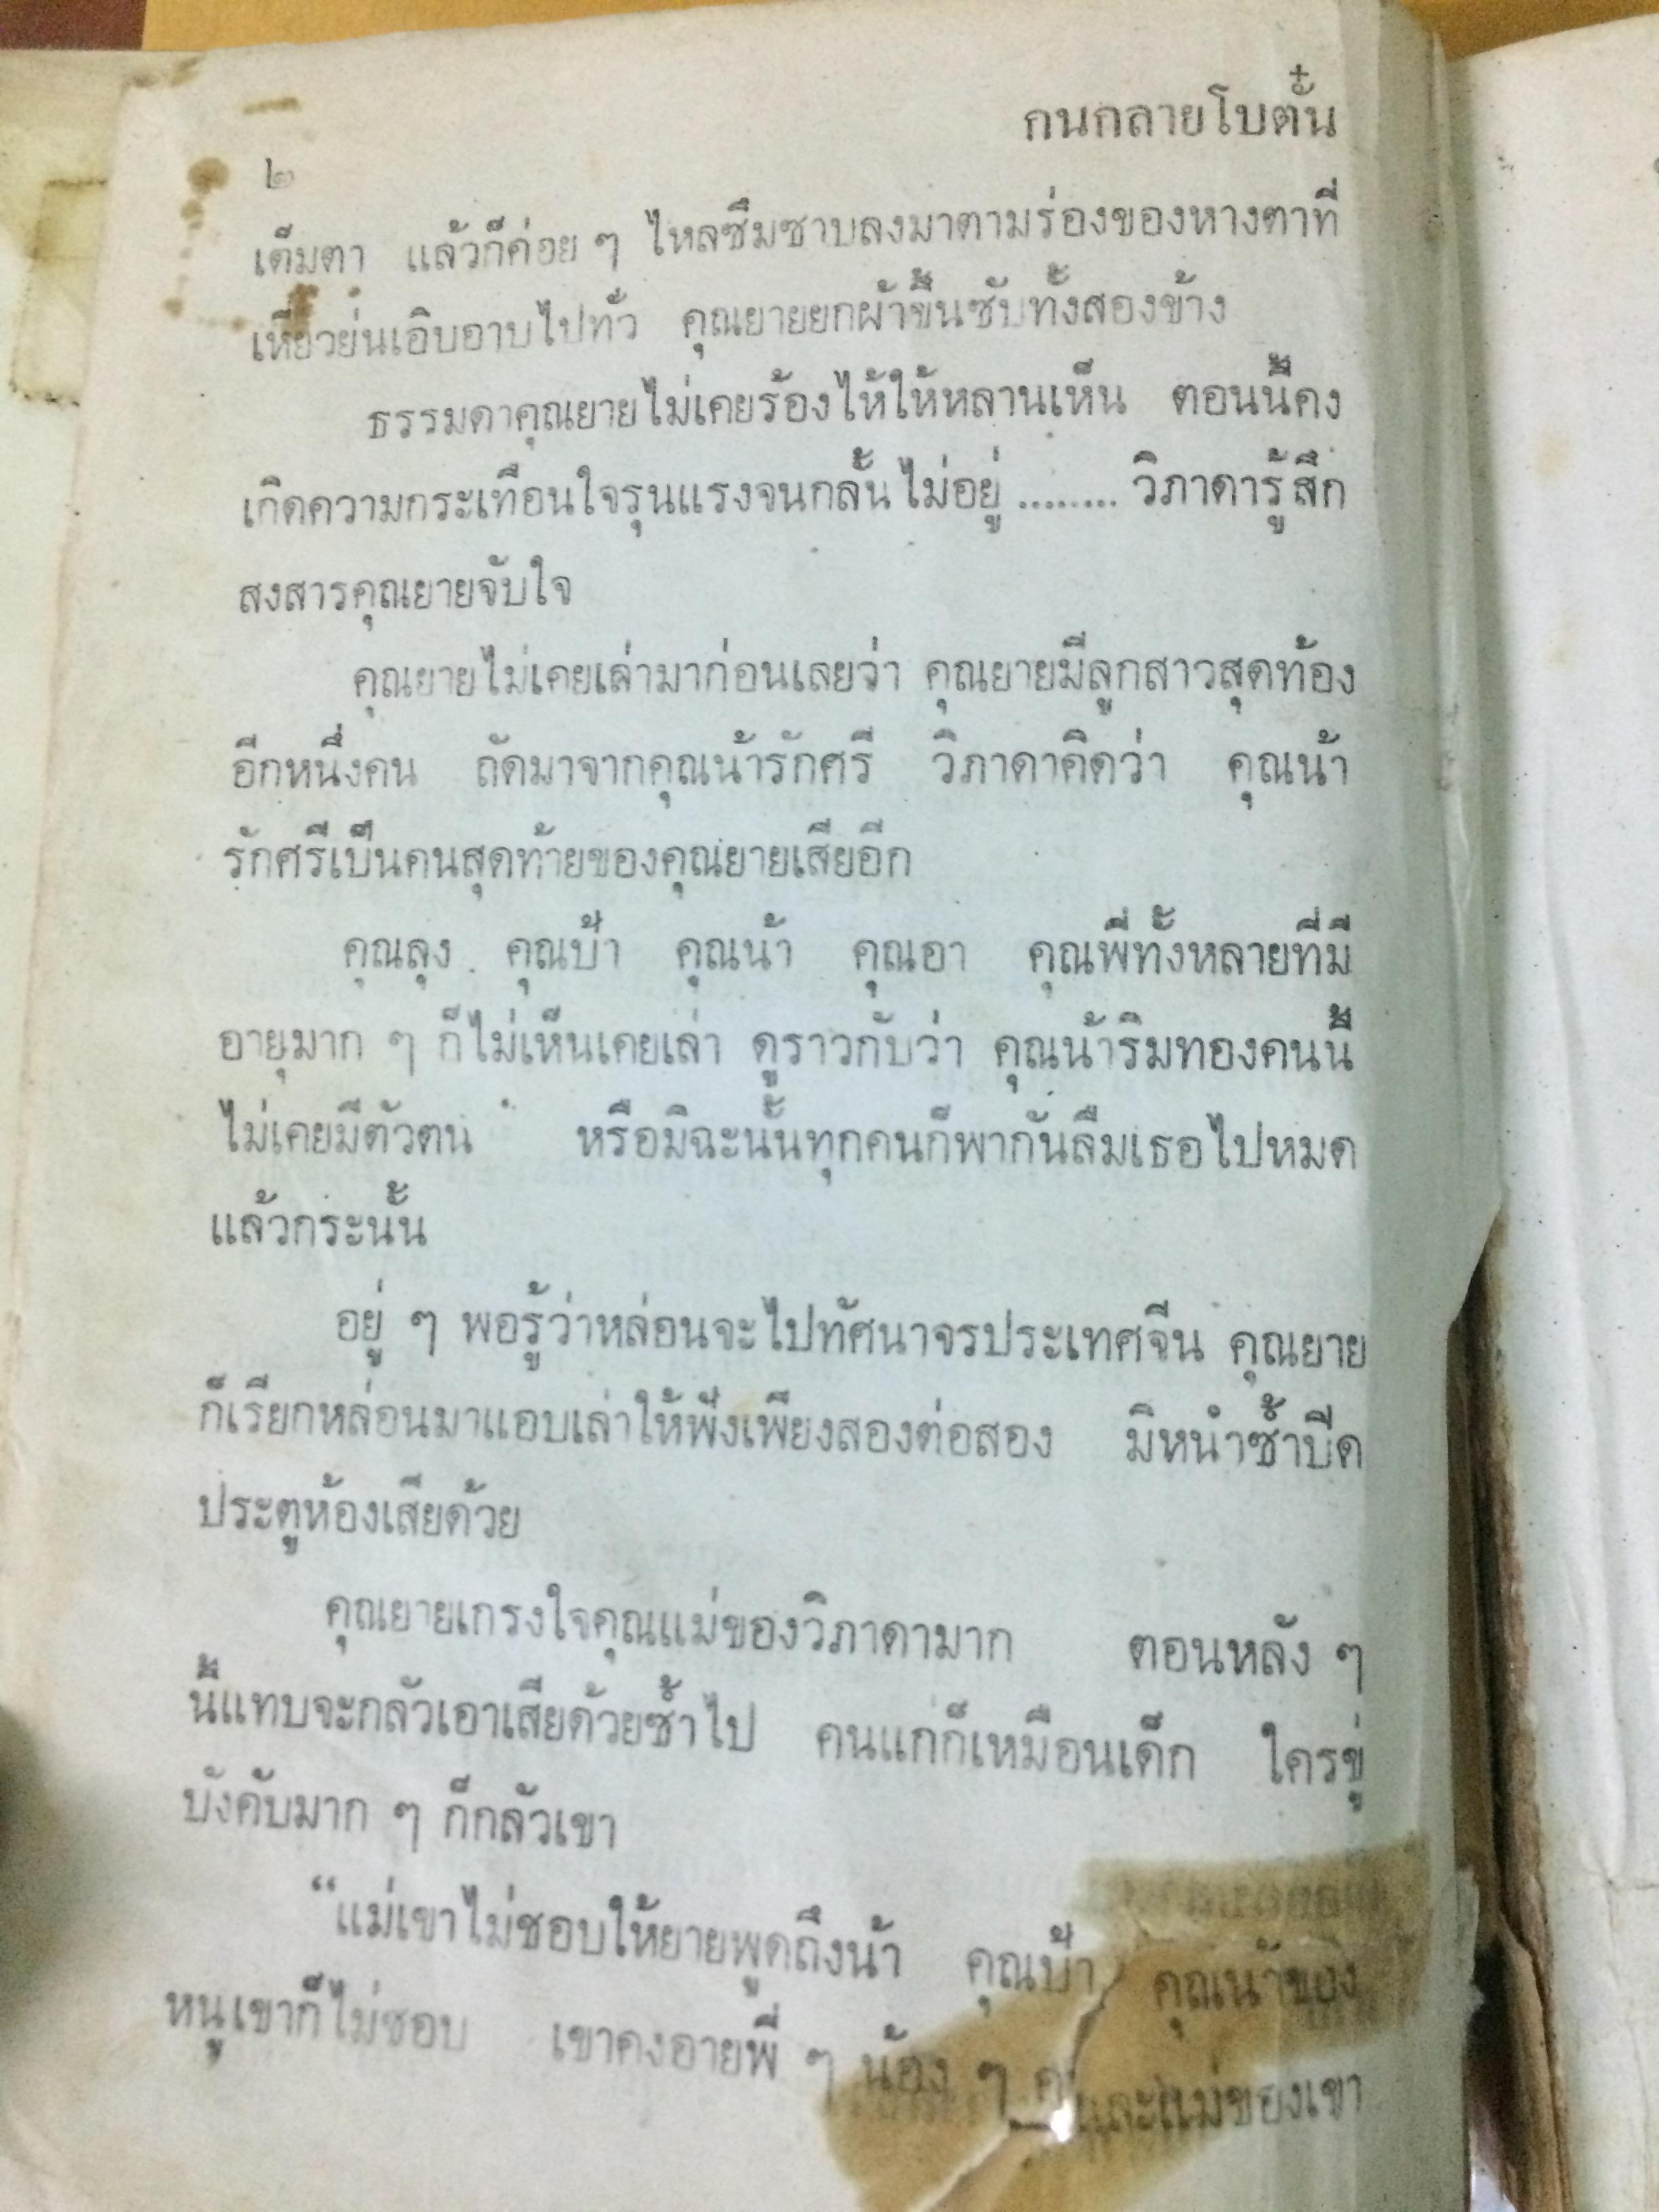 กนกลายโบตั๋น
๒
เต็มตา แล้วก็ค่อย ๆ ไหลซึมซาบลงมาตามร่องของหางตาที่
เหี่ยวย่นเอิบอาบไปทั่ว คุณยายยกผ้าขึ้นซับทั้งสองข้าง
ธรรมดาคุณยายไม่เคยร้องไห้ให้หลานเห็น ตอนนี้คง
เกิดความกระเทือนใจรุนแรงจนกลั้นไม่อยู่ ........ วิภาดารู้สึก
สงสารคุณยายจับใจ
คุณยายไม่เคยเล่ามาก่อนเลยว่า คุณยายมีลูกสาวสุดท้อง
อีกหนึ่งคน ถัดมาจากคุณน้ารักศรี วิภาดาคิดว่า คุณน้า
รักศรีเป็นคนสุดท้ายของคุณยายเสียอีก
คุณลุง คุณป้า คุณน้า คุณอา คุณพี่ทั้งหลายที่มี
อายุมาก ๆ ก็ไม่เห็นเคยเล่า ดูราวกับว่า คุณน้าริมทองคนนี้
ไม่เคยมีตัวตน หรือมิฉะนั้นทุกคนก็พากันลืมเธอไปหมด
แล้วกระนั้น
อยู่ ๆ พอรู้ว่าหล่อนจะไปทัศนาจรประเทศจีน คุณยาย
ก็เรียกหล่อนมาแอบเล่าให้ฟังเพียงสองต่อสอง มิหนำซ้ำปิด
ประตูห้องเสียด้วย
คุณยายเกรงใจคุณแม่ของวิภาดามาก ตอนหลัง ๆ
นี้แทบจะกลัวเอาเสียด้วยซ้ำไป คนแก่ก็เหมือนเด็ก ใครขู่
บังคับมาก ๆ ก็กลัวเขา
“แม่เขาไม่ชอบให้ยายพูดถึงน้า คุณป้า คุณน้าของ
หนูเขาก็ไม่ชอบ เขาคงอายพี่ ๆ น้อง ๆ และแม่ของเขา